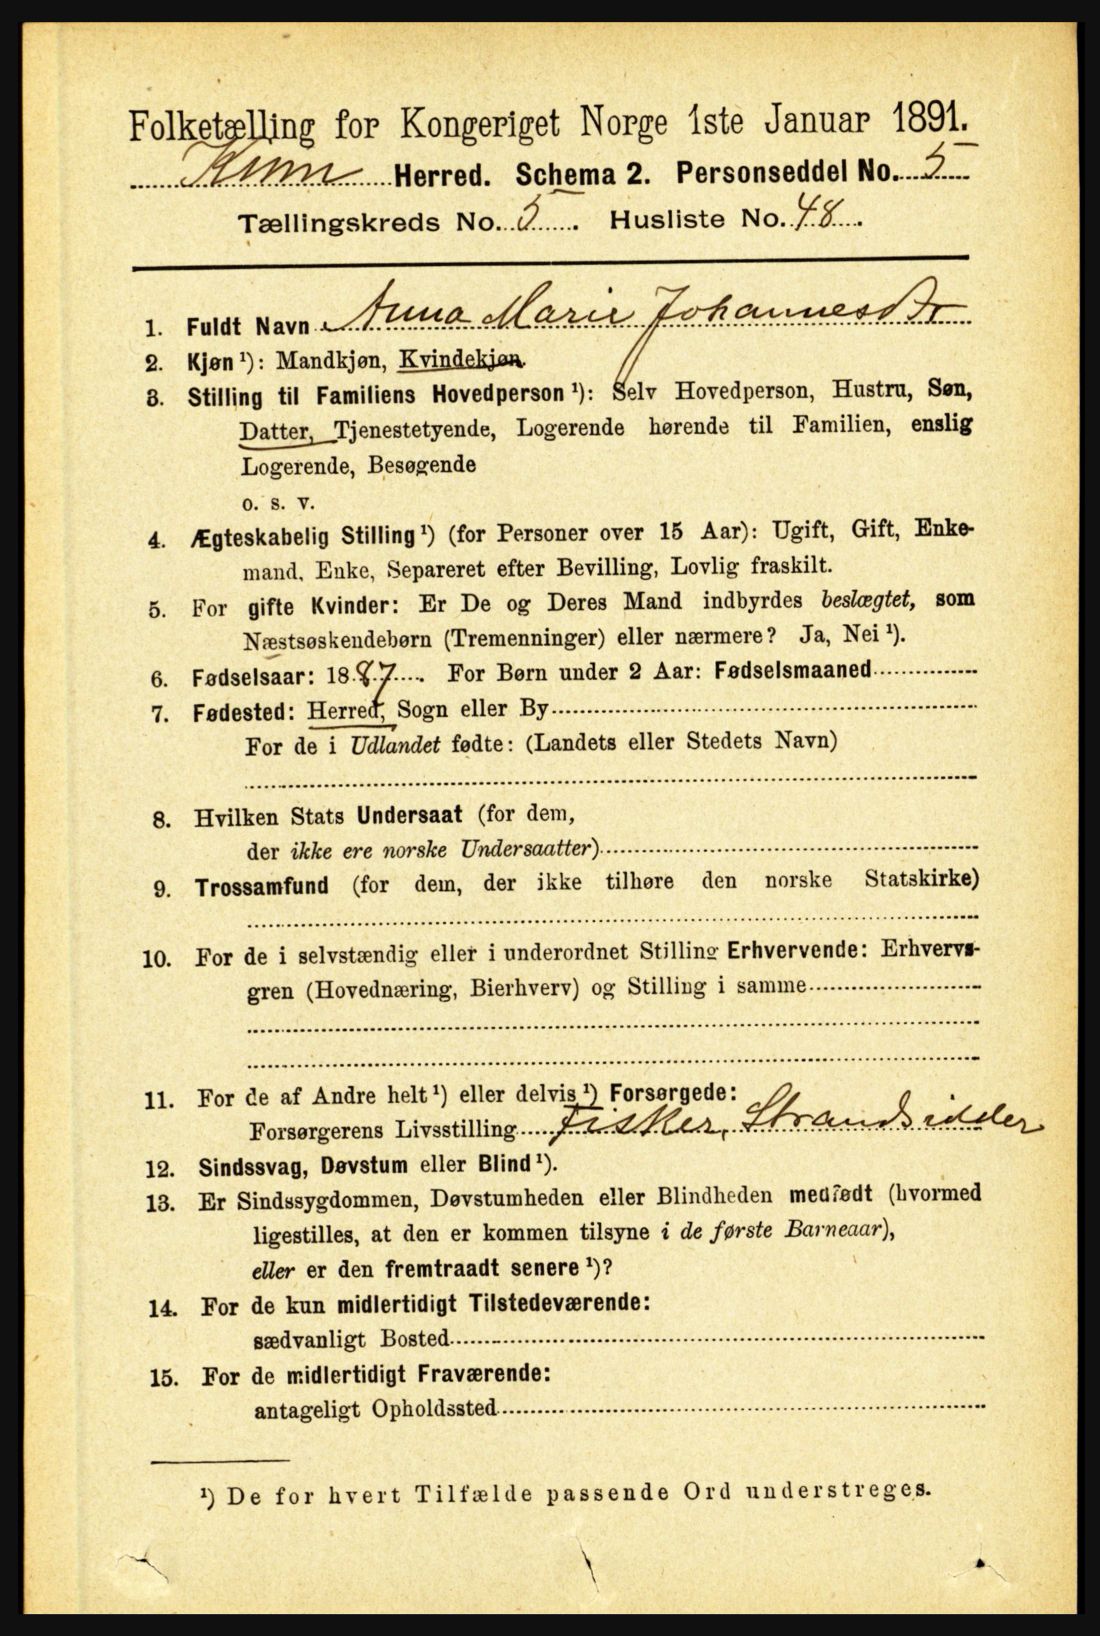 Folketælling for Kongeriget Norge 1ste Januar 1891.
Kinn Herred. Schema 2. Personseddel No. 5
Tællingskreds No. 5. Husliste No. 48.
1. Fuldt Navn Anna Marie Johannesdtr
2. Kjøn ¹): Mandkjøn, Kvindekjøn.
3. Stilling til Familiens Hovedperson ¹): Selv Hovedperson, Hustru, Søn,
Datter, Tjenestetyende, Logerende hørende til Familien, enslig
Logerende, Besøgende
o. s. v.
4. Ægteskabelig Stilling ¹) (for Personer over 15 Aar): Ugift, Gift, Enke-
mand, Enke, Separeret efter Bevilling, Lovlig fraskilt.
5. For gifte Kvinder: Er De og Deres Mand indbyrdes beslægtet, som
Næstsøskendebørn (Tremenninger) eller nærmere? Ja, Nei ¹).
6. Fødselsaar: 1887. For Børn under 2 Aar: Fødselsmaaned
7. Fødested: Herred, Sogn eller By
For de i Udlandet fødte: (Landets eller Stedets Navn)
8. Hvilken Stats Undersaat (for dem,
der ikke ere norske Undersaatter)
9. Trossamfund (for dem, der ikke tilhøre den norske Statskirke)
10. For de i selvstændig eller i underordnet Stilling Erhvervende: Erhvervs-
gren (Hovednæring, Bierhverv) og Stilling i samme
11. For de af Andre helt ¹) eller delvis ¹) Forsørgede:
Forsørgerens Livsstilling Fisker, Strandsidder
12. Sindssvag, Døvstum eller Blind ¹).
13. Er Sindssygdommen, Døvstumheden eller Blindheden medfødt (hvormed
ligestilles, at den er kommen tilsyne i de første Barneaar),
eller er den fremtraadt senere ¹)?
14. For de kun midlertidigt Tilstedeværende:
sædvanligt Bosted
15. For de midlertidigt Fraværende:
antageligt Opholdssted
¹) De for hvert Tilfælde passende Ord understreges.